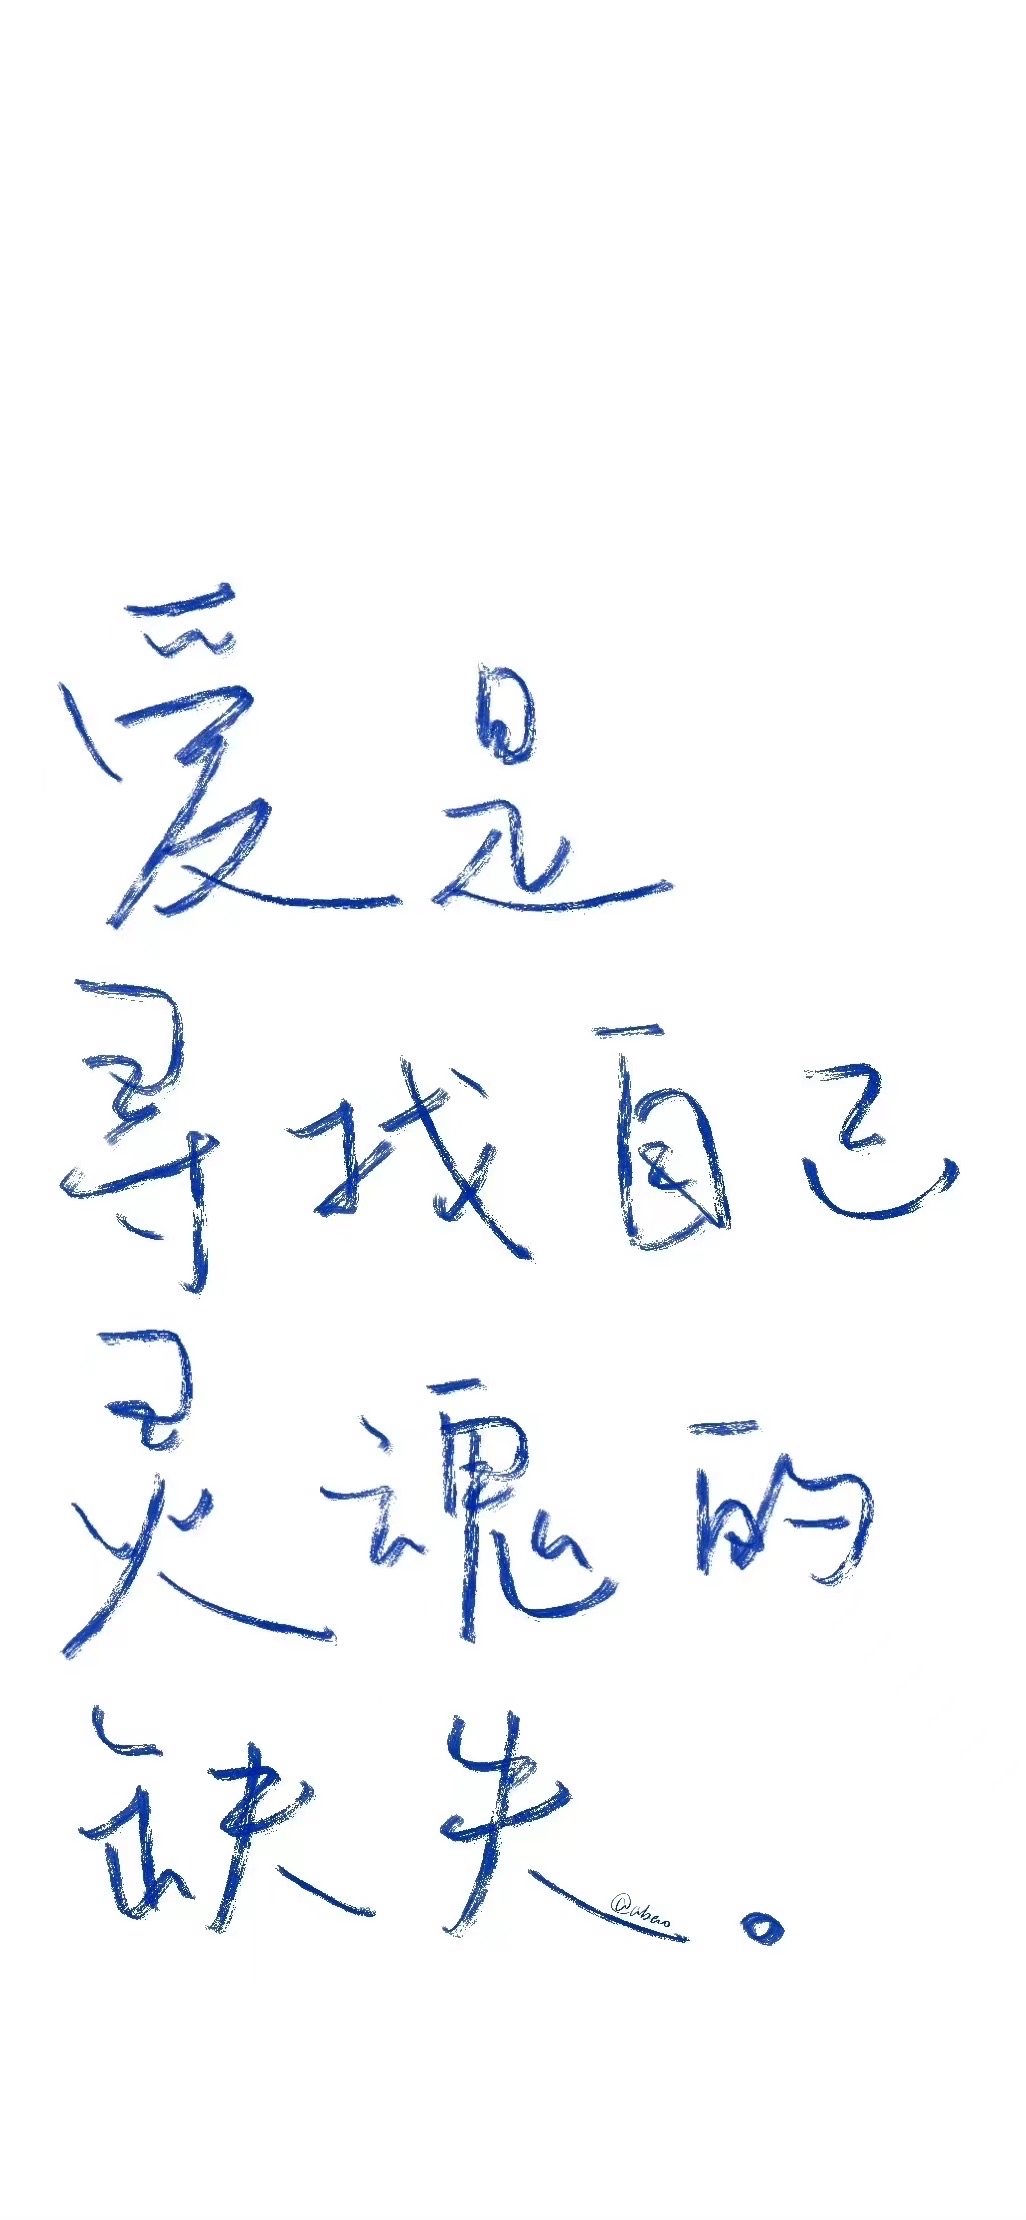 爱是
寻找自己
灵魂的
缺失。
@abao